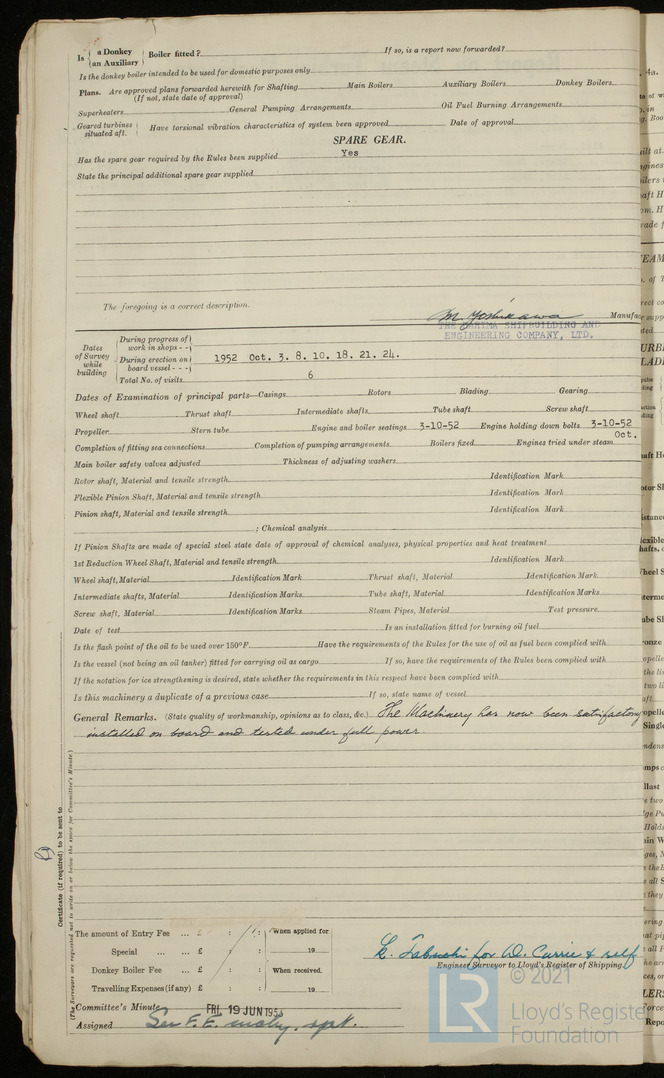 Is { a Donkey / an Auxiliary } Boiler fitted? If so, is a report now forwarded?
Is the donkey boiler intended to be used for domestic purposes only
Plans. Are approved plans forwarded herewith for Shafting Main Boilers Auxiliary Boilers Donkey Boilers
(If not, state date of approval)
Superheaters General Pumping Arrangements Oil Fuel Burning Arrangements
Geared turbines situated aft. Have torsional vibration characteristics of system been approved Date of approval
SPARE GEAR.
Has the spare gear required by the Rules been supplied Yes
State the principal additional spare gear supplied
The foregoing is a correct description.
M. Yoshikawa Manufac
THE HARIMA SHIPBUILDING AND
ENGINEERING COMPANY, LTD.
Dates of Survey while building
During progress of work in shops - -
During erection on board vessel - - - 1952 Oct. 3. 8. 10. 18. 21. 24.
Total No. of visits 6
Dates of Examination of principal parts—Casings Rotors Blading Gearing
Wheel shaft Thrust shaft Intermediate shafts Tube shaft Screw shaft
Propeller Stern tube Engine and boiler seatings 3-10-52 Engine holding down bolts 3-10-52
Completion of fitting sea connections Completion of pumping arrangements Boilers fixed Engines tried under steam Oct.
Main boiler safety valves adjusted Thickness of adjusting washers
Rotor shaft, Material and tensile strength Identification Mark
Flexible Pinion Shaft, Material and tensile strength Identification Mark
Pinion shaft, Material and tensile strength Identification Mark
; Chemical analysis
If Pinion Shafts are made of special steel state date of approval of chemical analyses, physical properties and heat treatment
1st Reduction Wheel Shaft, Material and tensile strength Identification Mark
Wheel shaft, Material Identification Mark Thrust shaft, Material Identification Mark
Intermediate shafts, Material Identification Marks Tube shaft, Material Identification Mark
Screw shaft, Material Identification Marks Steam Pipes, Material Test pressure
Date of test Is an installation fitted for burning oil fuel
Is the flash point of the oil to be used over 150°F. Have the requirements of the Rules for the use of oil as fuel been complied with
Is the vessel (not being an oil tanker) fitted for carrying oil as cargo If so, have the requirements of the Rules been complied with
If the notation for ice strengthening is desired, state whether the requirements in this respect have been complied with
Is this machinery a duplicate of a previous case If so, state name of vessel
General Remarks. (State quality of workmanship, opinions as to class, &c.) The Machinery has now been satisfactory
installed on board and tested under full power.
Certificate (if required) to be sent to
(The Surveyors are requested not to write on or below the space for Committee's Minute.)
The amount of Entry Fee ... £ : : When applied for
Special ... ... £ : : 19
Donkey Boiler Fee £ : : When received.
Travelling Expenses (if any) £ : : 19
K. Tabuchi for D. Currie & self
Engineer Surveyor to Lloyd's Register of Shipping.
Committee's Minute FRI. 19 JUN 1953
Assigned See F.E. mchy. rpt.
© 2021
LR
Lloyd's Registe
Foundation